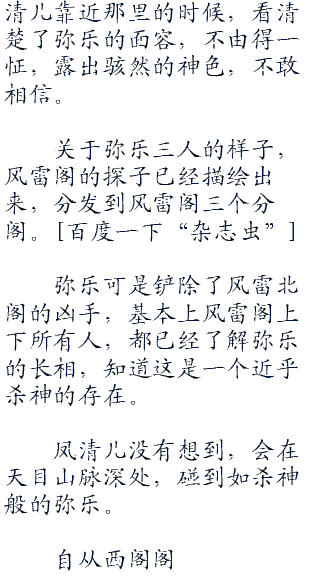 清儿靠近那里的时候，看清
楚了弥乐的面容，不由得一
怔，露出骇然的神色，不敢
相信。
关于弥乐三人的样子，
风雷阁的探子已经描绘出
来，分发到风雷阁三个分
阁。[百度一下“杂志虫”]
弥乐可是铲除了风雷北
阁的凶手，基本上风雷阁上
下所有人，都已经了解弥乐
的长相，知道这是一个近乎
杀神的存在。
凤清儿没有想到，会在
天目山脉深处，碰到如杀神
般的弥乐。
自从西阁阁